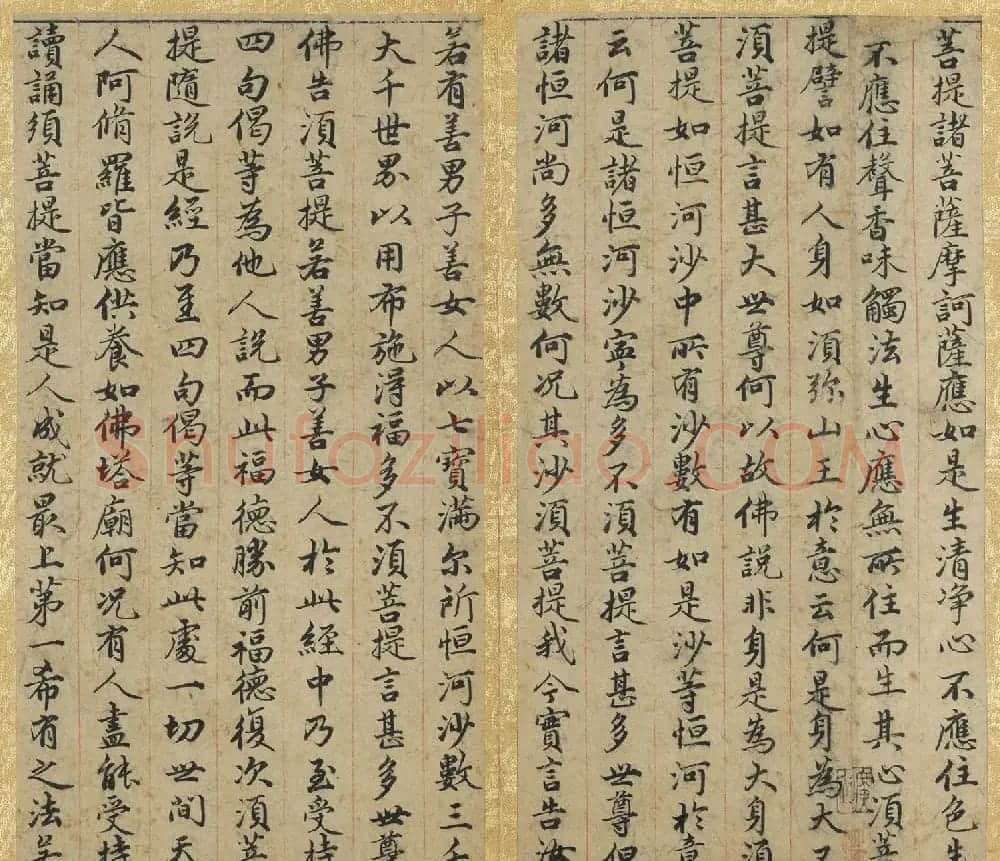 菩提諸菩薩摩訶薩應如是生清净心不應住色生
不應住聲香味觸法生心應無所住而生其心須菩
提譬如有人身如須弥山王於意云何是身為大不
須菩提言甚大世尊何以故佛說非身是為大身須
菩提如恒河沙中所有沙數有如是沙等恒河於意
云何是諸恒河沙寧為多不須菩提言甚多世尊但
諸恒河尚多無數何况其沙須菩提我今實言告汝
若有善男子善女人以七寶滿尔所恒河沙數三千
大千世界以用布施得福多不須菩提言甚多世尊
佛告須菩提若善男子善女人於此經中乃至受持
四句偈等為他人說而此福德勝前福德復次須菩
提隨說是經乃至四句偈等當知此處一切世間天
人阿脩羅皆應供養如佛塔廟何况有人盡能受持
讀誦須菩提當知是人成就最上第一希有之法若
Shufaziliao.COM